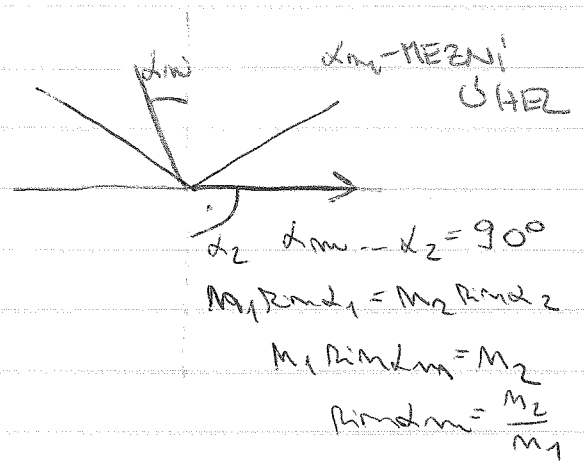 αm
αm - MEZNÍ
ÚHEL
α2 αm ... α2 = 90°
n1 sin α1 = n2 sin α2
n1 sin αm = n2
sin αm = n2/n1